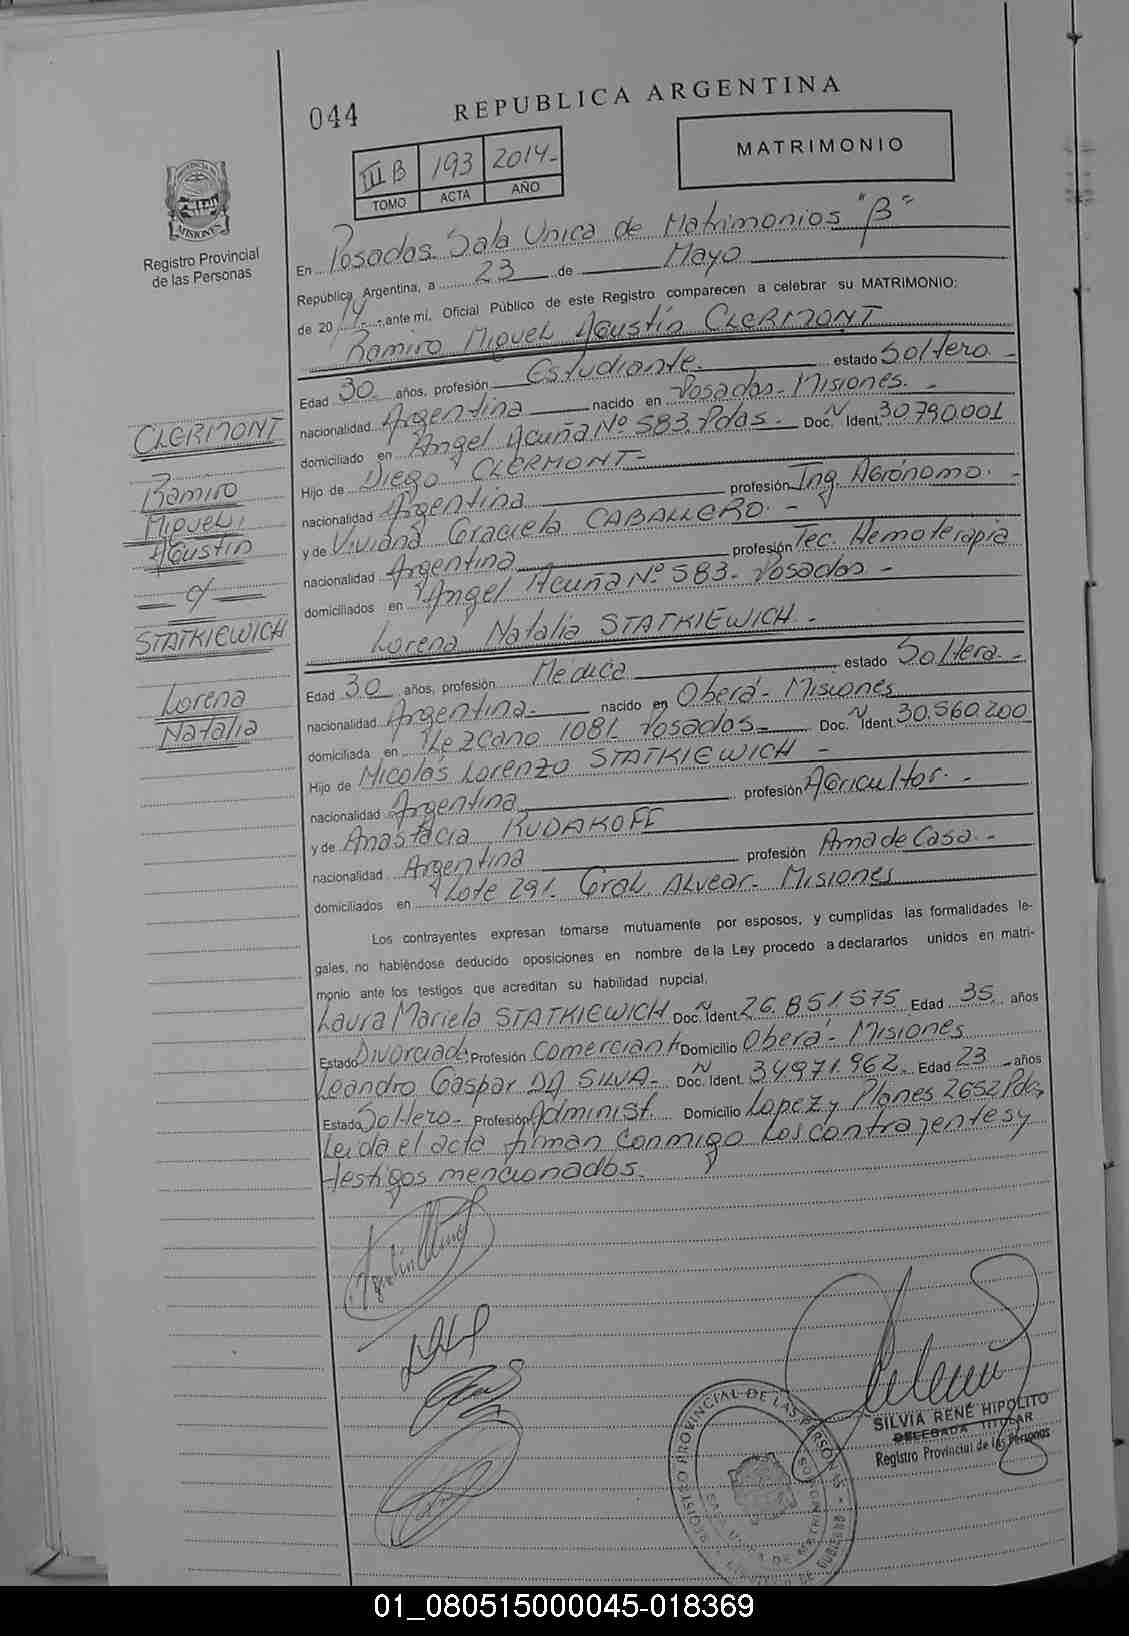 044
REPUBLICA ARGENTINA
III B 193 2014-
TOMO ACTA AÑO
MATRIMONIO
MISIONES
Registro Provincial
de las Personas
En Posadas Sala Unica de Matrimonios "B"
República Argentina, a 23 de Mayo
de 2014 - ante mí, Oficial Público de este Registro comparecen a celebrar su MATRIMONIO:
Ramiro Miguel Agustín CLERMONT
Edad 30 años, profesión Estudiante. estado Soltero -
nacionalidad Argentina nacido en Posadas - Misiones. -
domiciliado en Angel Acuña Nº 583. Pdas. - Doc. N Ident. 30.790.001
Hijo de Diego CLERMONT -
nacionalidad Argentina profesión Ing. Agrónomo. -
y de Viviana Graciela CABALLERO. -
nacionalidad Argentina profesión Tec. Hemoterapia
domiciliados en Angel Acuña Nº 583 - Posadas -
Lorena Natalia STATKIEWICH. -
Edad 30 años, profesión Médica estado Soltera. -
nacionalidad Argentina. - nacido en Oberá - Misiones
domiciliada en Lezcano 1081. Posadas - Doc. N Ident. 30.560.200
Hijo de Nicolás Lorenzo STATKIEWICH -
nacionalidad Argentina profesión Agricultor. -
y de Anastacia RUDAKOFF
nacionalidad Argentina profesión Ama de Casa. -
domiciliados en Lote 291. Gral. Alvear - Misiones
Los contrayentes expresan tomarse mutuamente por esposos, y cumplidas las formalidades le-
gales, no habiéndose deducido oposiciones en nombre de la Ley procedo a declararlos unidos en matri-
monio ante los testigos que acreditan su habilidad nupcial.
Laura Mariela STATKIEWICH Doc. N Ident. 26.851.575 Edad 35. años
Estado Divorciada Profesión Comerciante Domicilio Oberá - Misiones
Leandro Gaspar DA SILVA - Doc. N Ident. 34.971.962. Edad 23 - años
Estado Soltero - Profesión Administ. Domicilio Lopez y Planes 2652 Pdas,
Leida el acta firman conmigo los contrayentes y
testigos mencionados. -
CLERMONT
Ramiro
Miguel,
Agustín
STATKIEWICH
Lorena
Natalia
SILVIA RENÉ HIPOLITO
DELEGADA TITULAR
Registro Provincial de las Personas
REGISTRO PROVINCIAL DE LAS PERSONAS
01_080515000045-018369